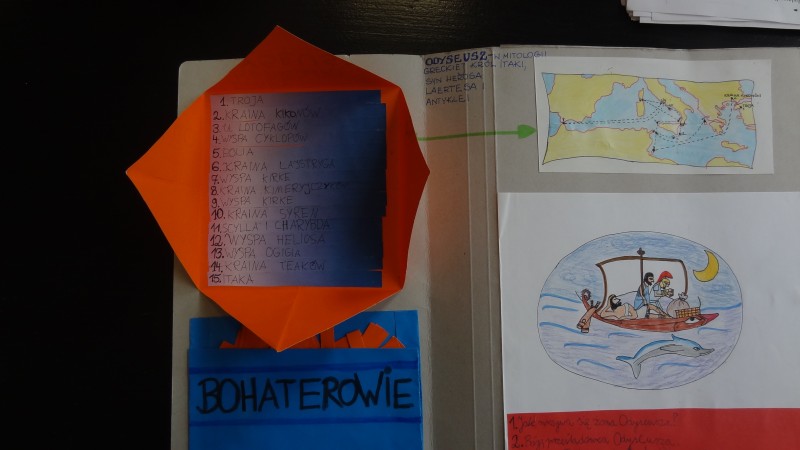 1. TROJA
2. KRAINA KIKONÓW
3. LOTOFAGÓW
4. WYSPA CYKLOPÓW
5. EOLIA
6. KRAINA
7. WYSPA KIRKE
8. KRAINA
9. WYSPA KIRKE
10. KRAINA SYREN
11. SCYLLA I CHARYBDA
12. WYSPA HELIOSA
13. WYSPA OGIGIA
14. KRAINA FEAKÓW
15. ITAKA
BOHATEROWIE
ODYSEUSZ - W MITOLOGII
GRECKIEJ KRÓL ITAKI,
SYN HEROSA
LAERTESA I
ANTYKLEI.
1. Jak Odyseusza?
2.